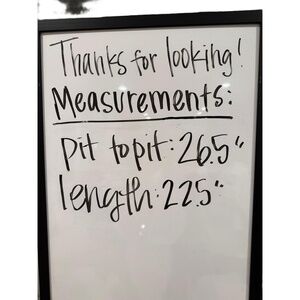 Thanks for looking!
Measurements:
pit to pit: 26.5"
length: 22.5"